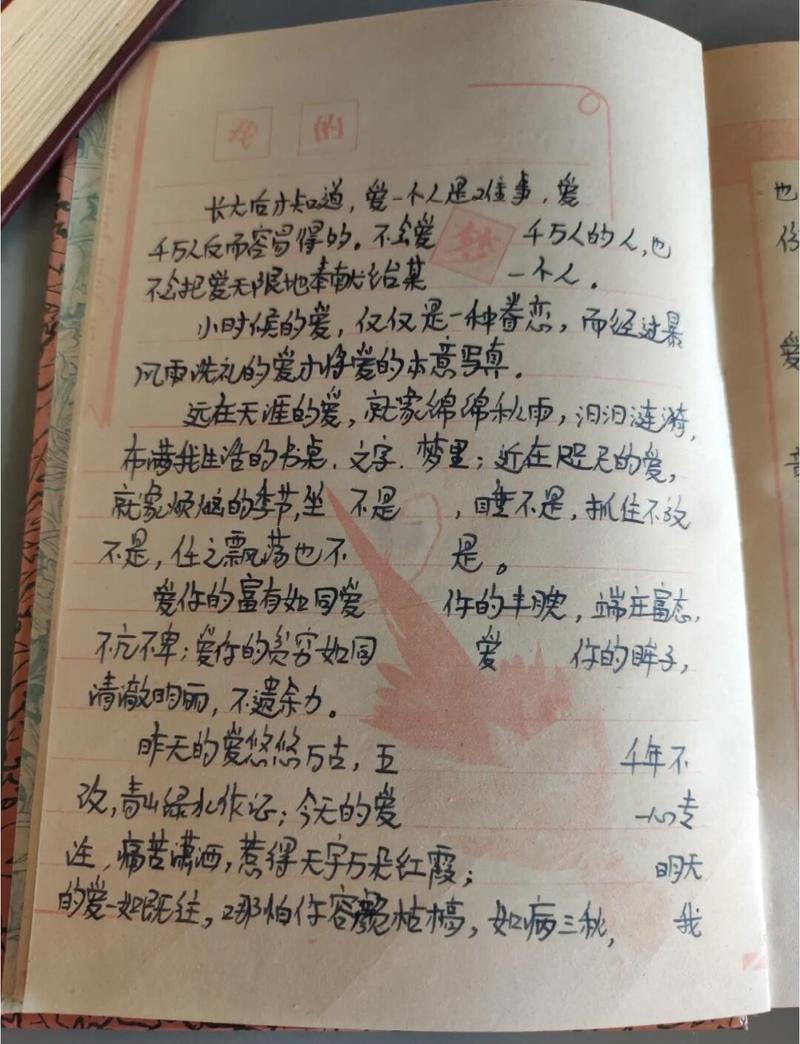 长大后才知道，爱一个人是难事，爱
千万人反而容易得的。不会爱 梦 千万人的人，也
不会把爱无限地奉献给某 一个人。
小时候的爱，仅仅是一种眷恋，而经过暴
风雨洗礼的爱才将爱的本意写真。
远在天涯的爱，就象绵绵秋雨，汨汨涟漪，
布满我生活的书桌、文字、梦里；近在咫尺的爱，
就象烦恼的季节，坐 不是 ，睡不是，抓住不放
不是，任之飘荡也不 是。
爱你的富有如同爱 你的丰腴，端庄富态，
不亢不卑；爱你的贫穷如同 爱 你的眸子，
清澈明丽，不遗余力。
昨天的爱悠悠万古，五 千年不
改，青山绿水作证；今天的爱 一心专
注，痛苦潇洒，惹得天宇万朵红霞； 明天
的爱一如既往，哪怕你容貌枯槁，如病三秋， 我
也
份
爱